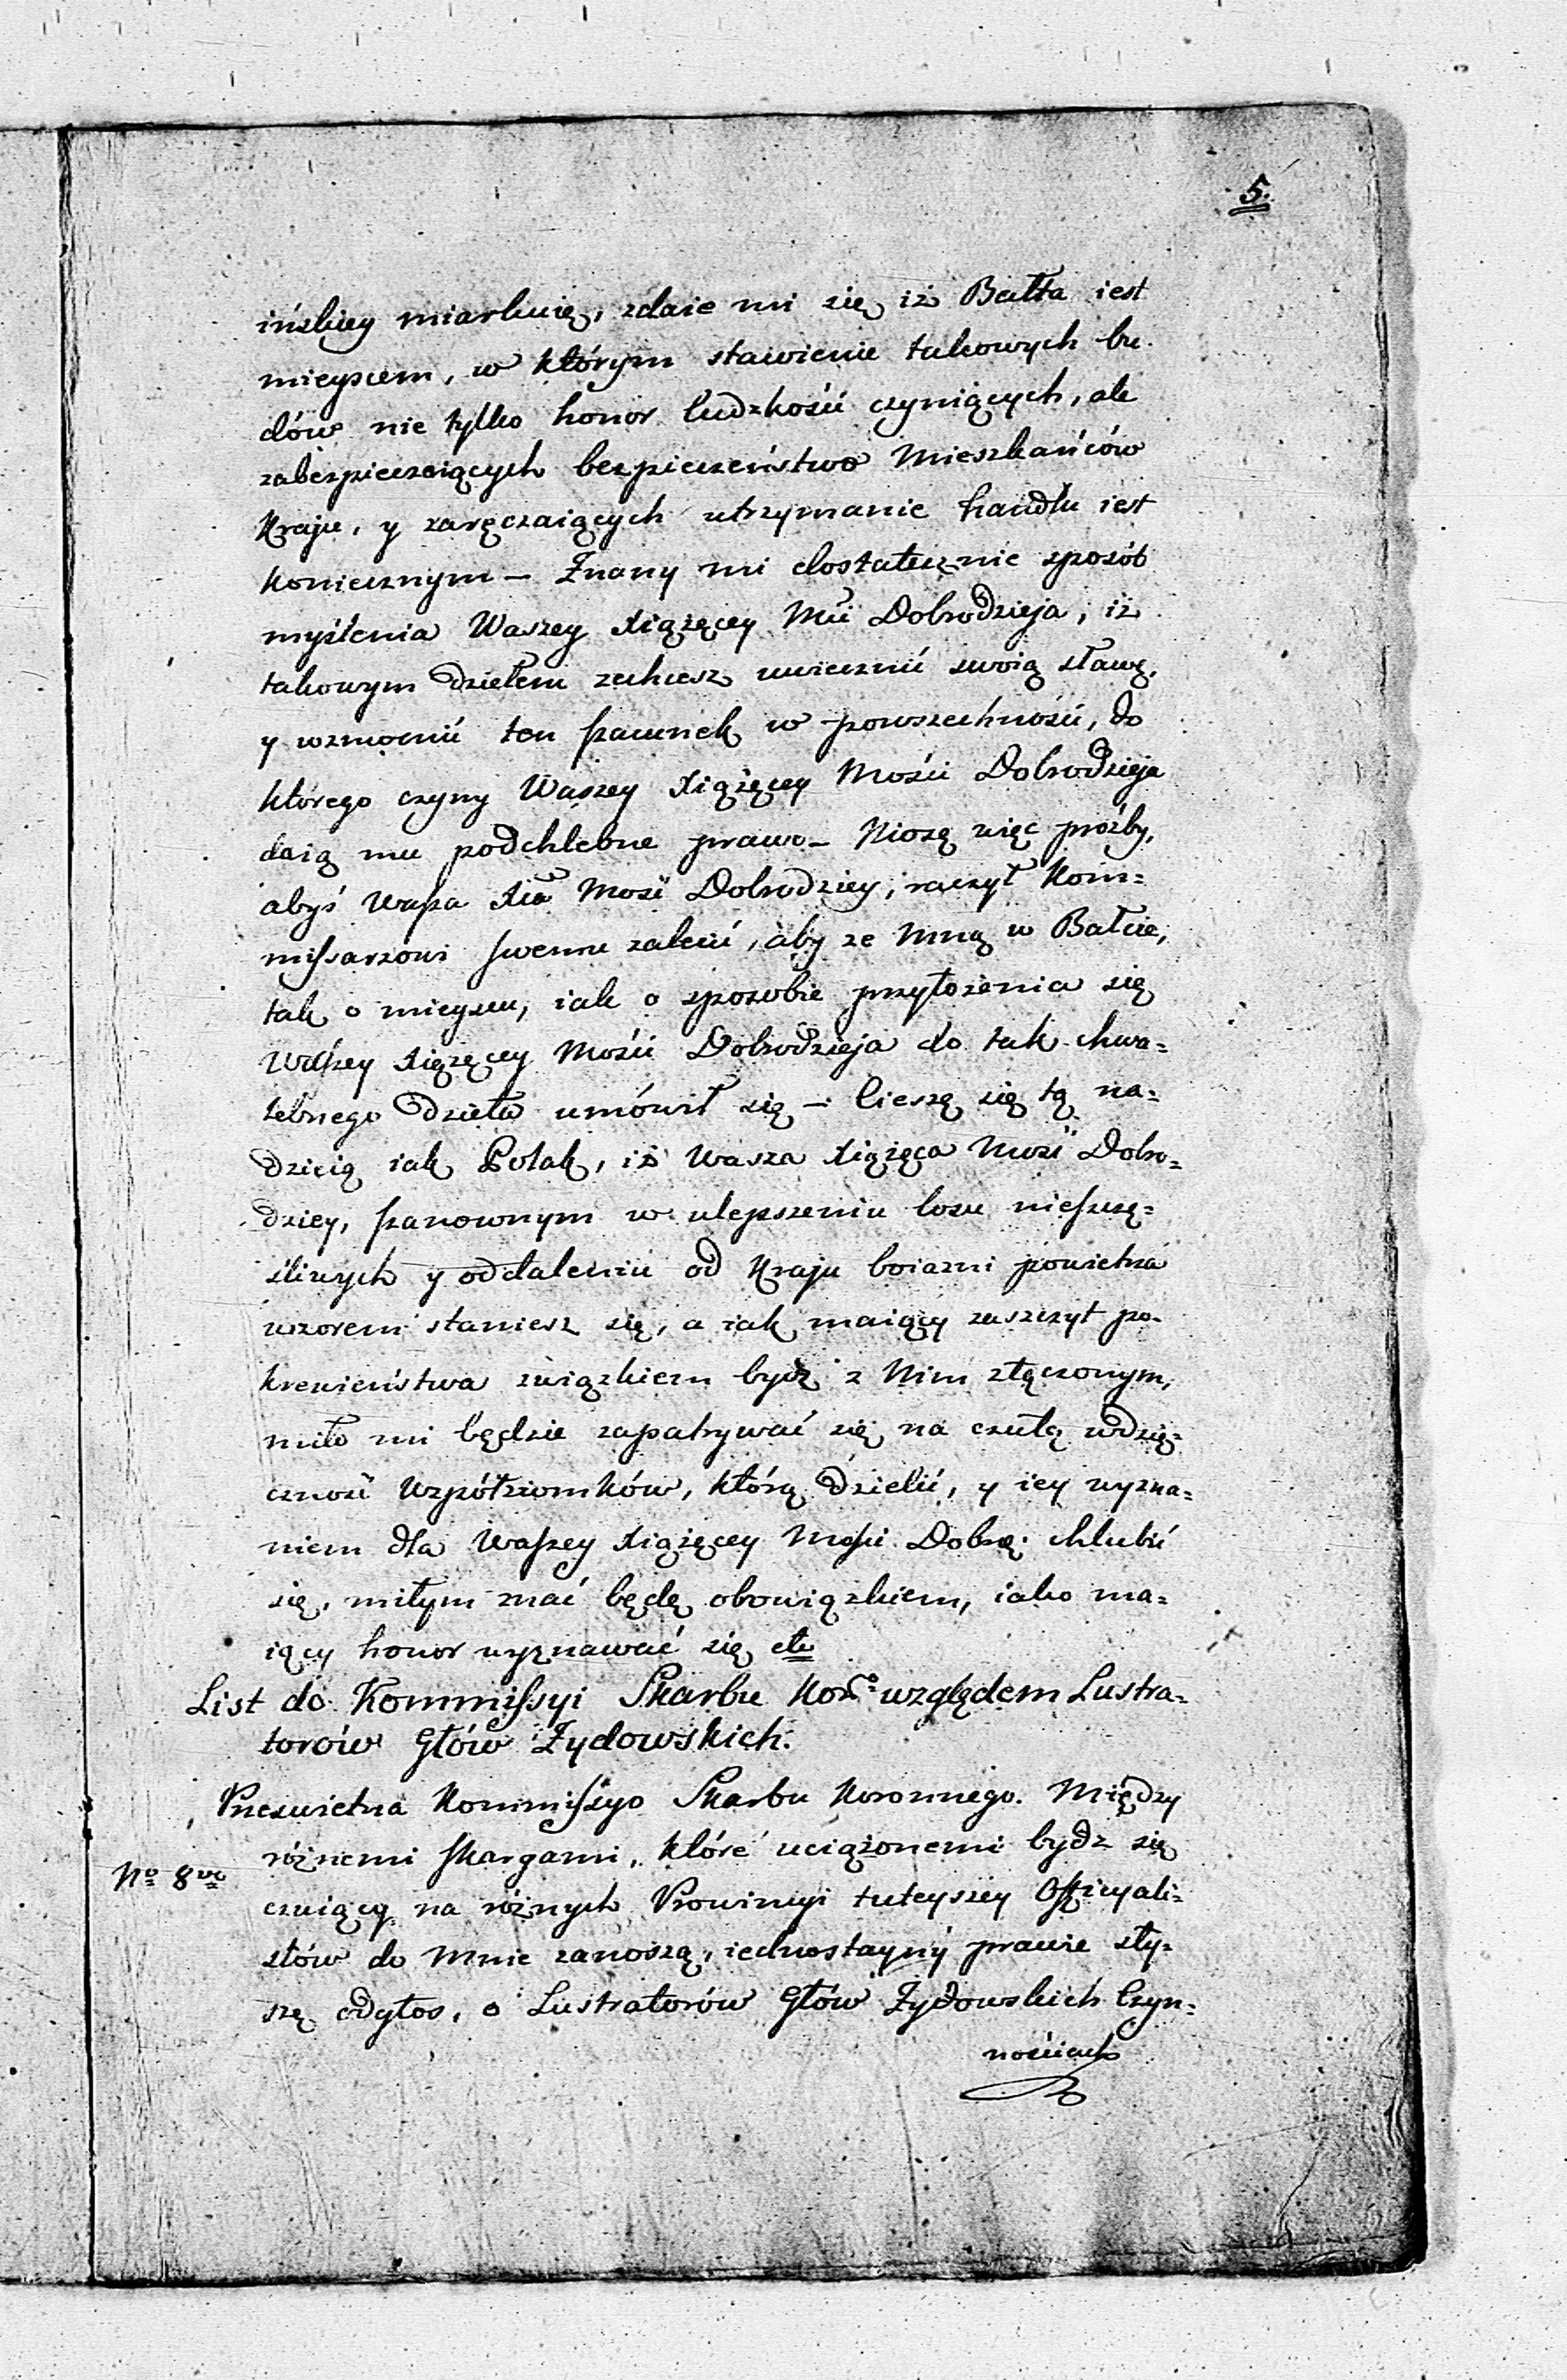 5.
ińskiey miarkuię, zdaie mi się iż Bałta iest
mieyscem, w którym stawienie takowych bu-
dów nie tylko honor ludzkości czyniących, ale
zabezpieczaiących bezpieczeństwo Mieszkańców
Kraju, y zaręczaiących utrzymanie handlu iest
koniecznym – Znany mi dostatecznie sposób
myślenia Waszey Xiążęcey Mći Dobrodzieja, iż
takowym dziełem zechcesz uwiecznić swoią sławę,
y wzmocnić ten szacunek w powszechności, do
którego czyny Waszey Xiążęcey Mości Dobrodzieja
daią mu podchlebne prawo – Niosę więc proźby,
abyś Wasza Xca Mość Dobrodziey, raczył Kom=
missarzowi swemu zalecić, aby ze Mną w Bałcie,
tak o mieyscu, iak o sposobie przyłożenia się
Waszey Xiążęcey Mości Dobrodzieja do tak chwa=
lebnego dzieła umówił się – Cieszę się tą na=
dzieią iak Polak, iż Wasza Xiążęca Mość Dobro=
dziey, szanownym w ulepszeniu losu nieszczę=
śliwych y oddaleniu od Kraju boiaźni powietrza
wzorem staniesz się, a iak maiący zaszczyt po-
krewieństwa związkiem bydź z Nim złączonym,
miło mi będzie zapatrywać się na czułą wdzię=
czność Współziomków, którą dzielić, y iey wyzna=
niem dla Waszey Xiążęcey Mości Dobrą: chlubić
się, miłym znać będę obowiązkiem, iako ma=
iący honor wyznawać się etc
List do Kommissyi Skarbu Kor:o względem Lustra-
torów Głów Żydowskich.
Prześwietna Kommissyo Skarbu Koronnego. Między
różnemi skargami, które uciążonemi bydz się
No 8vo
czuiący na różnych Prowincyi tuteyszey Officyali=
stów do Mnie zanoszą, iednostayny prawie sły=
szę odgłos, o Lustratorów Głów Żydowskich Czyn=
nościach